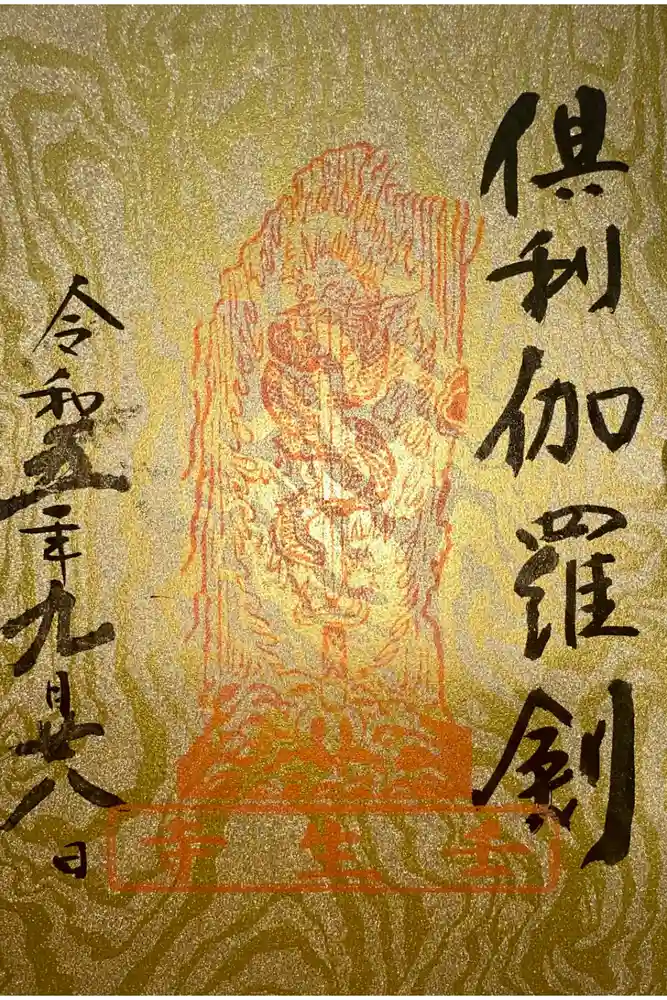 倶利伽羅剣
令和五年九月廿八日
壬生寺